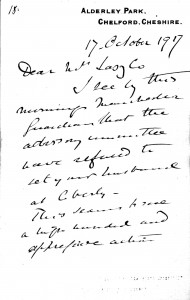 15.
ALDERLEY PARK,
CHELFORD, CHESHIRE.
17. October 1917
Dear Mrs Laszlo
I see by this
morning's Manchester
Guardian that the
advisory committee
have refused to
set your husband
at liberty -
This seems to me
a high handed and
oppressive action